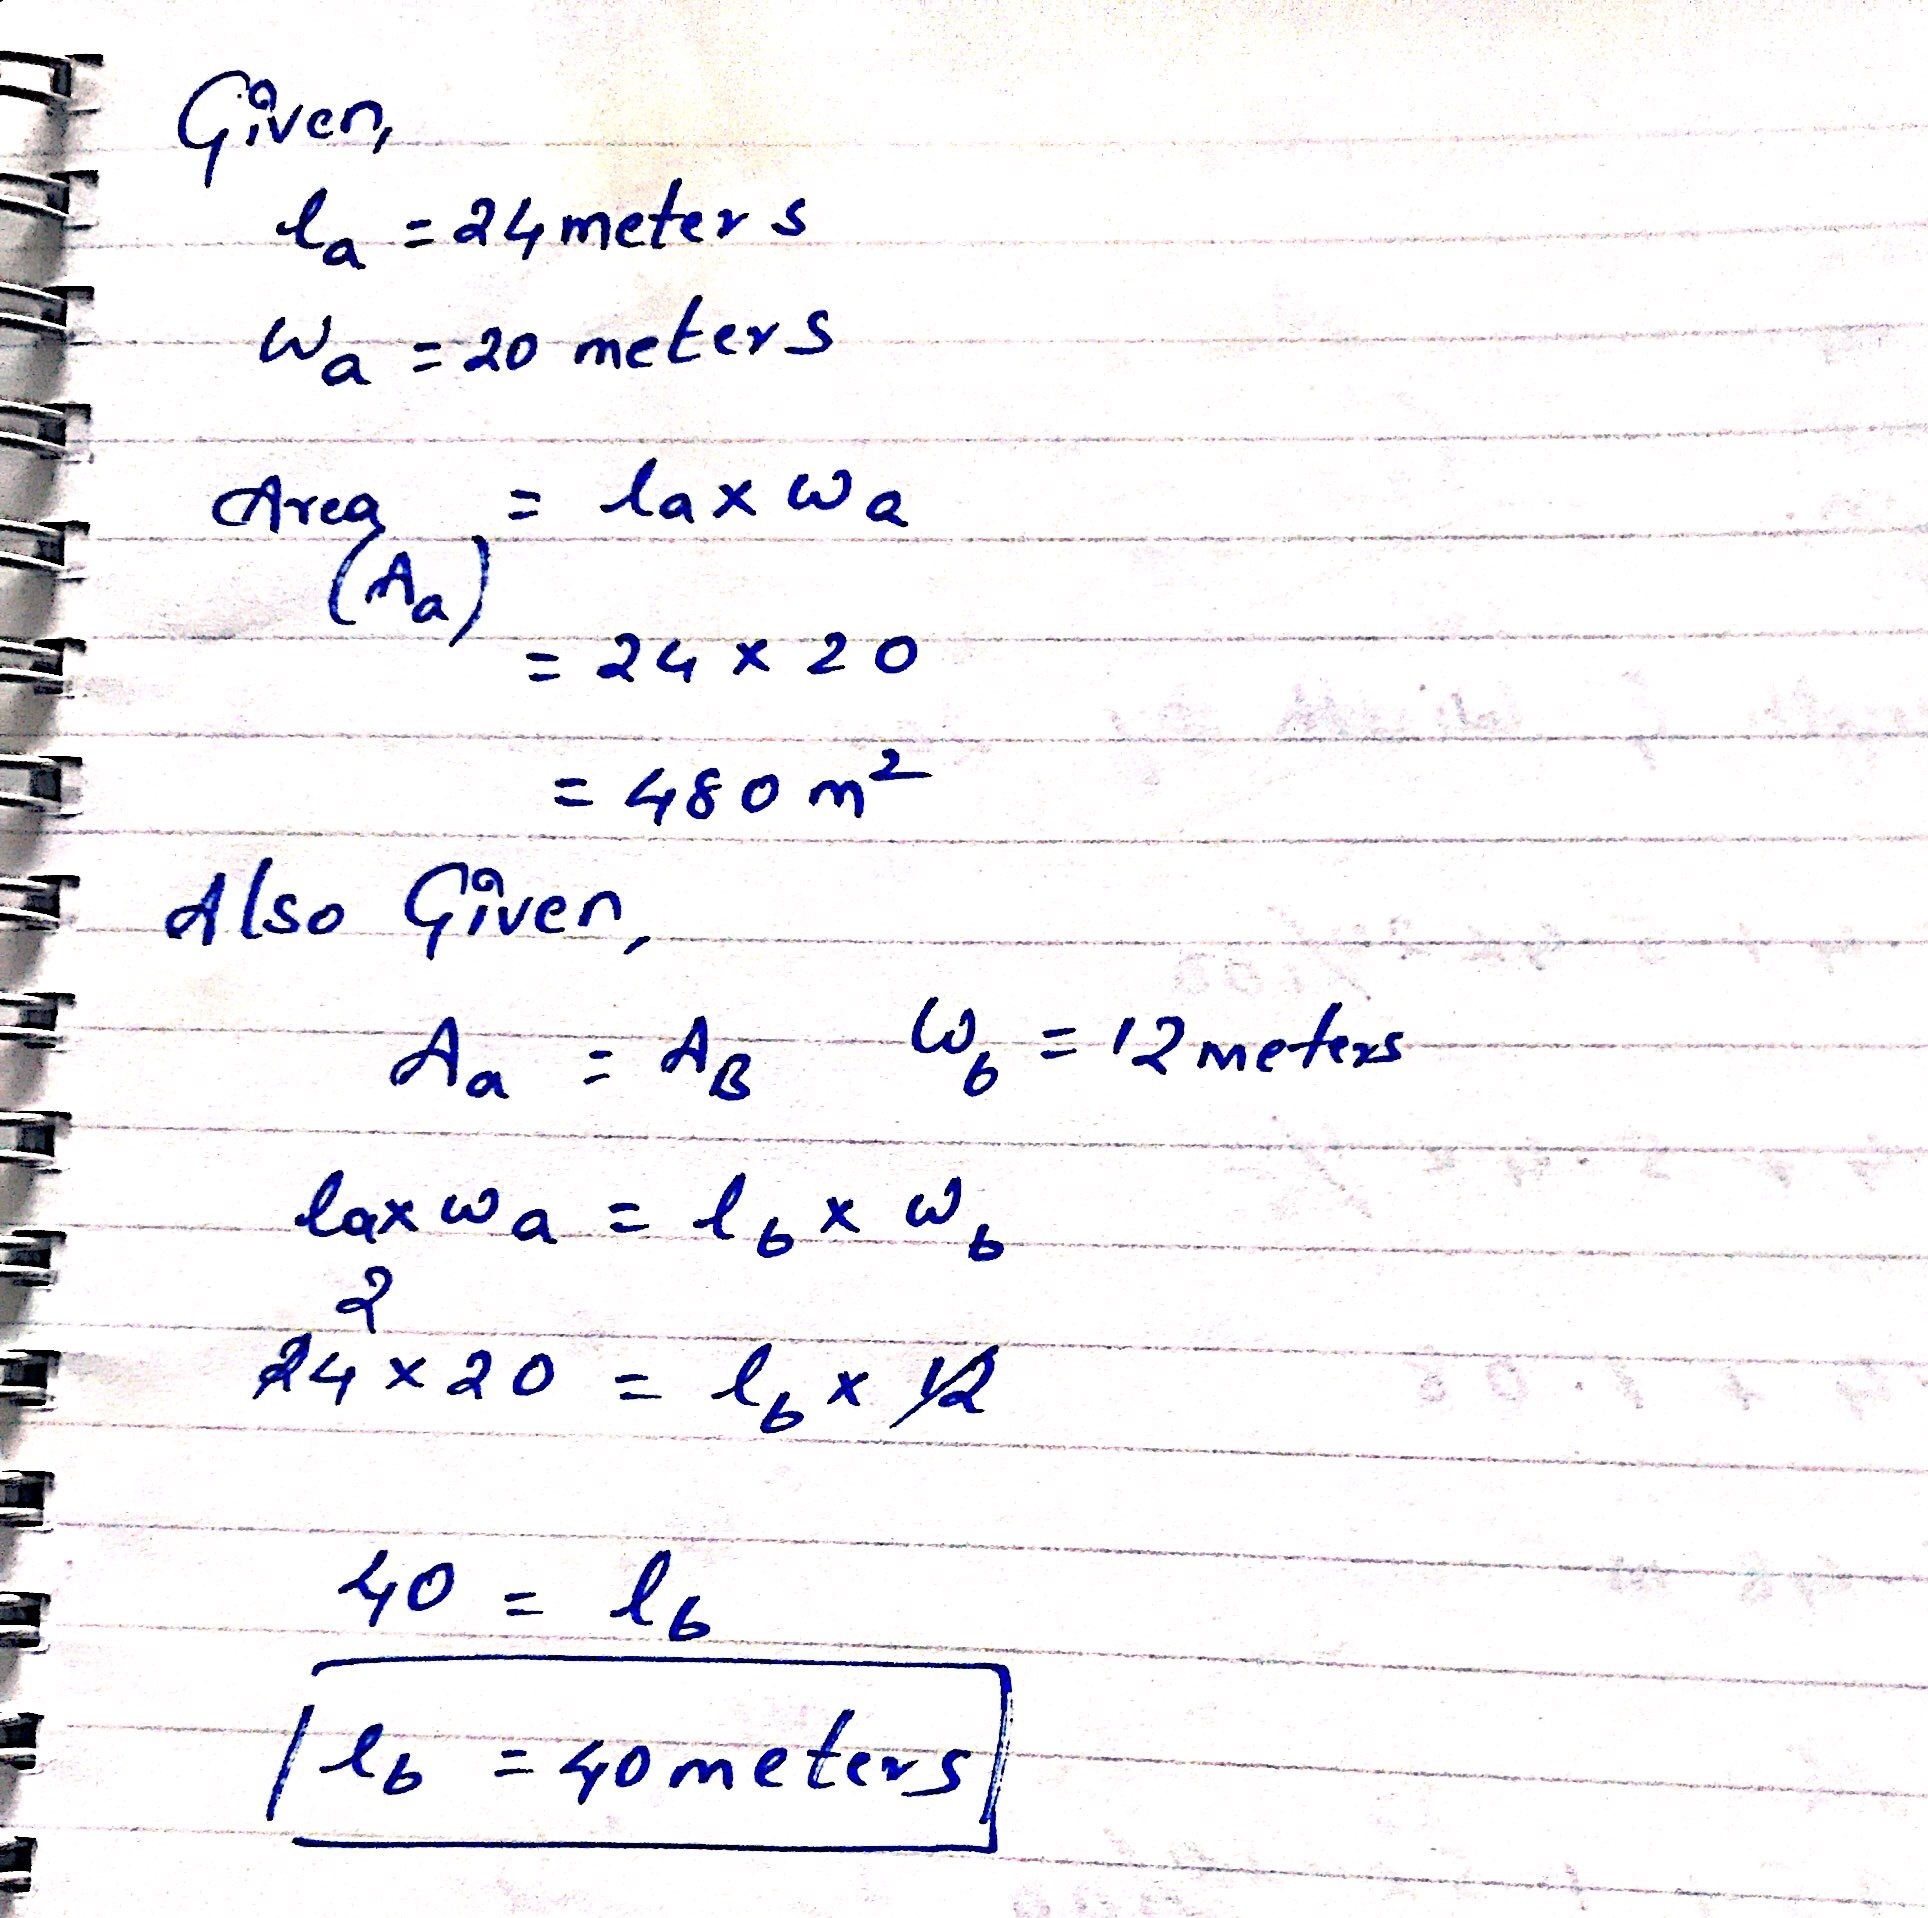 Given,
la = 24 meters
Wa = 20 meters
Area = la x wa
(Aa)
= 24 x 20
= 480 m²
Also Given,
Aa = AB Wb = 12 meters
la x wa = lb x wb
2
24 x 20 = lb x 12
40 = lb
lb = 40 meters